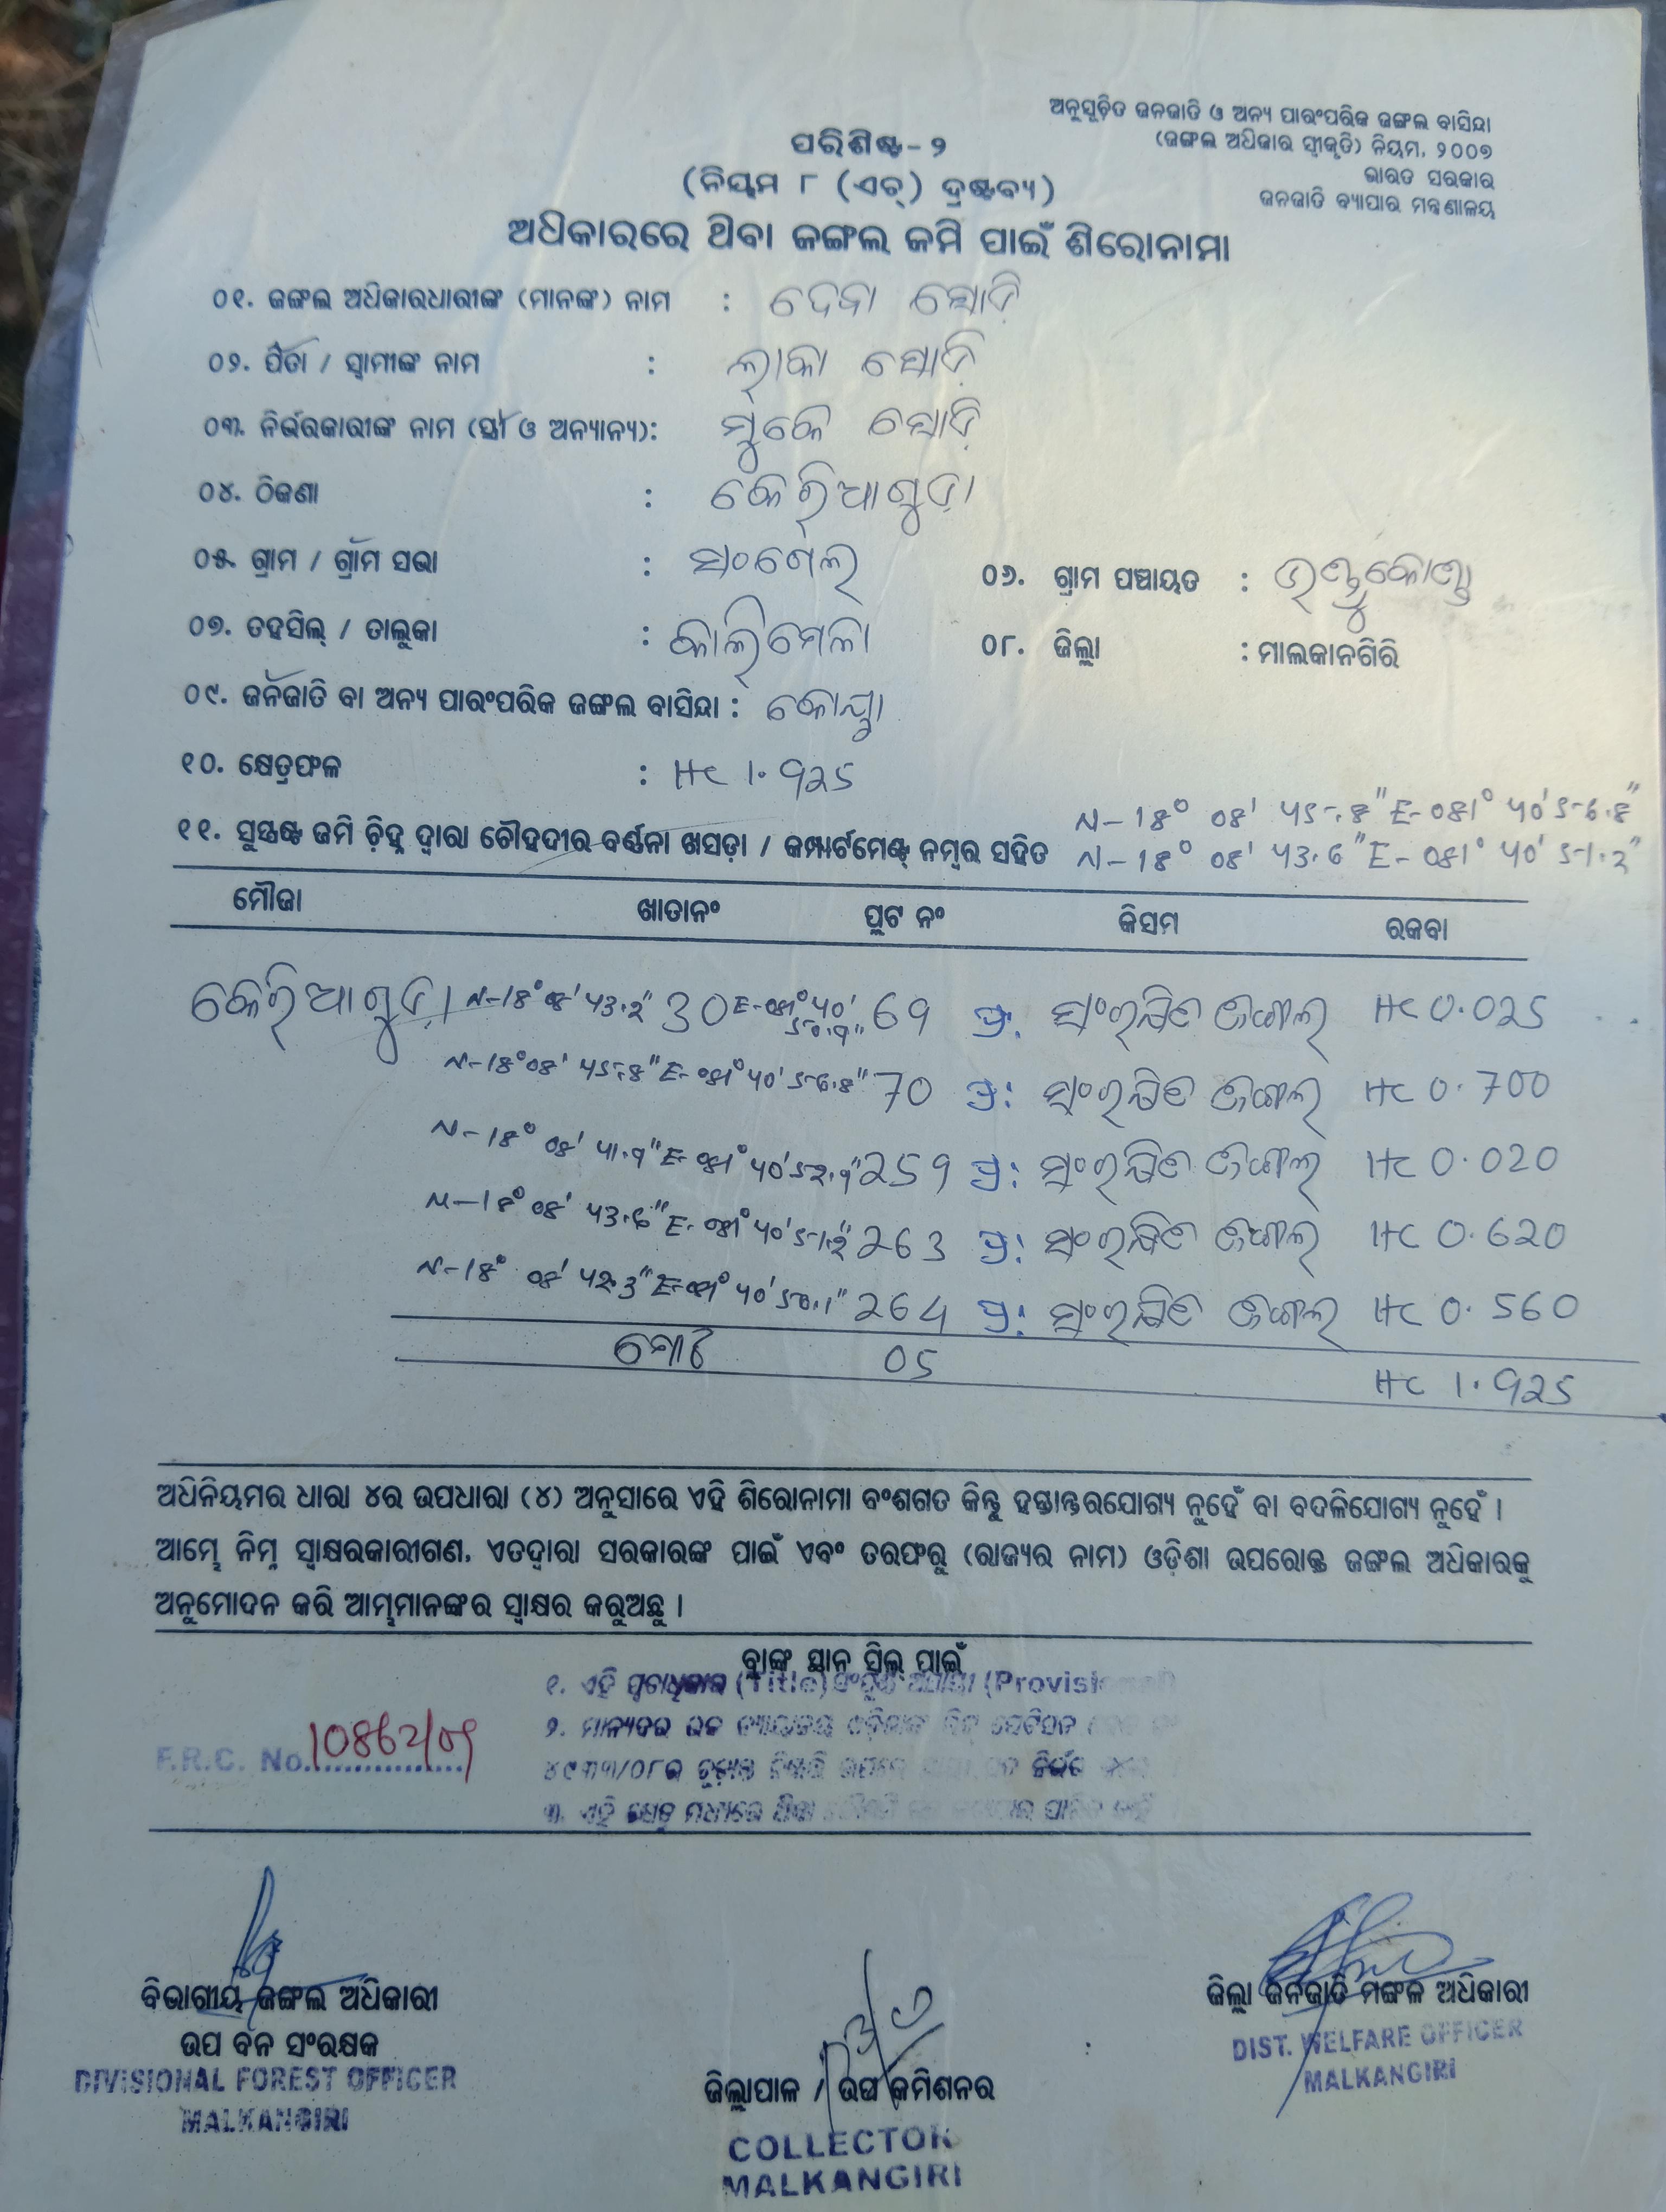 ଅନୁସୂଚିତ ଜନଜାତି ଓ ଅନ୍ୟ ପାରଂପରିକ ଜଙ୍ଗଲ ବାସିନ୍ଦା
(ଜଙ୍ଗଲ ଅଧିକାର ସ୍ୱୀକୃତି) ନିୟମ, ୨୦୦୭
ଭାରତ ସରକାର
ଜନଜାତି ବ୍ୟାପାର ମନ୍ତ୍ରଣାଳୟ
ପରିଶିଷ୍ଟ- ୨
(ନିୟମ ୮ (ଏଚ୍) ଦ୍ରଷ୍ଟବ୍ୟ)
ଅଧିକାରରେ ଥିବା ଜଙ୍ଗଲ ଜମି ପାଇଁ ଶିରୋନାମା
୦୧. ଜଙ୍ଗଲ ଅଧିକାରଧାରୀଙ୍କ (ମାନଙ୍କ) ନାମ : ଦେବା ମାଡ଼ି
୦୨. ପିତା / ସ୍ୱାମୀଙ୍କ ନାମ : ଲାକା ମାଡ଼ି
୦୩. ନିର୍ଭରକାରୀଙ୍କ ନାମ (ସ୍ତ୍ରୀ ଓ ଅନ୍ୟାନ୍ୟ): ମୁକେ ମାଡ଼ି
୦୪. ଠିକଣା : କେରିଆଗୁଡ଼ା
୦୫. ଗ୍ରାମ / ଗ୍ରାମ ସଭା : ୦୬. ଗ୍ରାମ ପଞ୍ଚାୟତ :
୦୭. ତହସିଲ୍ / ତାଲୁକା : କାଲିମେଳା ୦୮. ଜିଲ୍ଲା : ମାଲକାନଗିରି
୦୯. ଜନଜାତି ବା ଅନ୍ୟ ପାରଂପରିକ ଜଙ୍ଗଲ ବାସିନ୍ଦା : କୋୟା
୧୦. କ୍ଷେତ୍ରଫଳ : HC 1.925
N-18° 08' 45.8" E-081° 40' 56.8"
୧୧. ସୁସ୍ପଷ୍ଟ ଜମି ଚିହ୍ନ ଦ୍ୱାରା ଚୌହଦୀର ବର୍ଣ୍ଣନା ଖସଡ଼ା / କମ୍ପାର୍ଟମେଣ୍ଟ ନମ୍ବର ସହିତ N-18° 08' 43.6" E-081° 40' 51.2"
ମୌଜା ଖାତାନଂ ପ୍ଲଟ ନଂ କିସମ ରକବା
କେରିଆଗୁଡ଼ା N-18°08' 43.2" 30 E-081°40' 50.9" 69 ପ୍ର: ସଂରକ୍ଷିତ ଜଙ୍ଗଲ HC 0.025
N-18°08' 45.8" E-081°40' 56.8" 70 ପ୍ର: ସଂରକ୍ଷିତ ଜଙ୍ଗଲ HC 0.700
N-18° 08' 41.9" E-081°40' 52.9" 259 ପ୍ର: ସଂରକ୍ଷିତ ଜଙ୍ଗଲ HC 0.020
N-18° 08' 43.6" E-081°40' 51.2" 263 ପ୍ର: ସଂରକ୍ଷିତ ଜଙ୍ଗଲ HC 0.620
N-18° 08' 42.3" E-081° 40' 50.1" 264 ପ୍ର: ସଂରକ୍ଷିତ ଜଙ୍ଗଲ HC 0.560
ମୋଟ 05 HC 1.925
ଅଧିନିୟମର ଧାରା ୪ର ଉପଧାରା (୪) ଅନୁସାରେ ଏହି ଶିରୋନାମା ବଂଶଗତ କିନ୍ତୁ ହସ୍ତାନ୍ତରଯୋଗ୍ୟ ନୁହେଁ ବା ବଦଳିଯୋଗ୍ୟ ନୁହେଁ ।
ଆମ୍ଭେ ନିମ୍ନ ସ୍ୱାକ୍ଷରକାରୀଗଣ, ଏତଦ୍ୱାରା ସରକାରଙ୍କ ପାଇଁ ଏବଂ ତରଫରୁ (ରାଜ୍ୟର ନାମ) ଓଡ଼ିଶା ଉପରୋକ୍ତ ଜଙ୍ଗଲ ଅଧିକାରକୁ
ଅନୁମୋଦନ କରି ଆମ୍ଭମାନଙ୍କର ସ୍ୱାକ୍ଷର କରୁଅଛୁ ।
ବ୍ଲାଙ୍କ ସ୍ଥାନ ସିଲ୍ ପାଇଁ
୧. ଏହି (Title)
୨. ମାନ୍ୟବର ଉଚ୍ଚ
F.R.C. No. 10862/09
୩. ଏହି
ବିଭାଗୀୟ ଜଙ୍ଗଲ ଅଧିକାରୀ
ଉପ ବନ ସଂରକ୍ଷକ
DIVISIONAL FOREST OFFICER
MALKANGIRI
ଜିଲ୍ଲାପାଳ / ଉପ କମିଶନର
COLLECTOR
MALKANGIRI
ଜିଲ୍ଲା ଜନଜାତି ମଙ୍ଗଳ ଅଧିକାରୀ
DIST. WELFARE OFFICER
MALKANGIRI